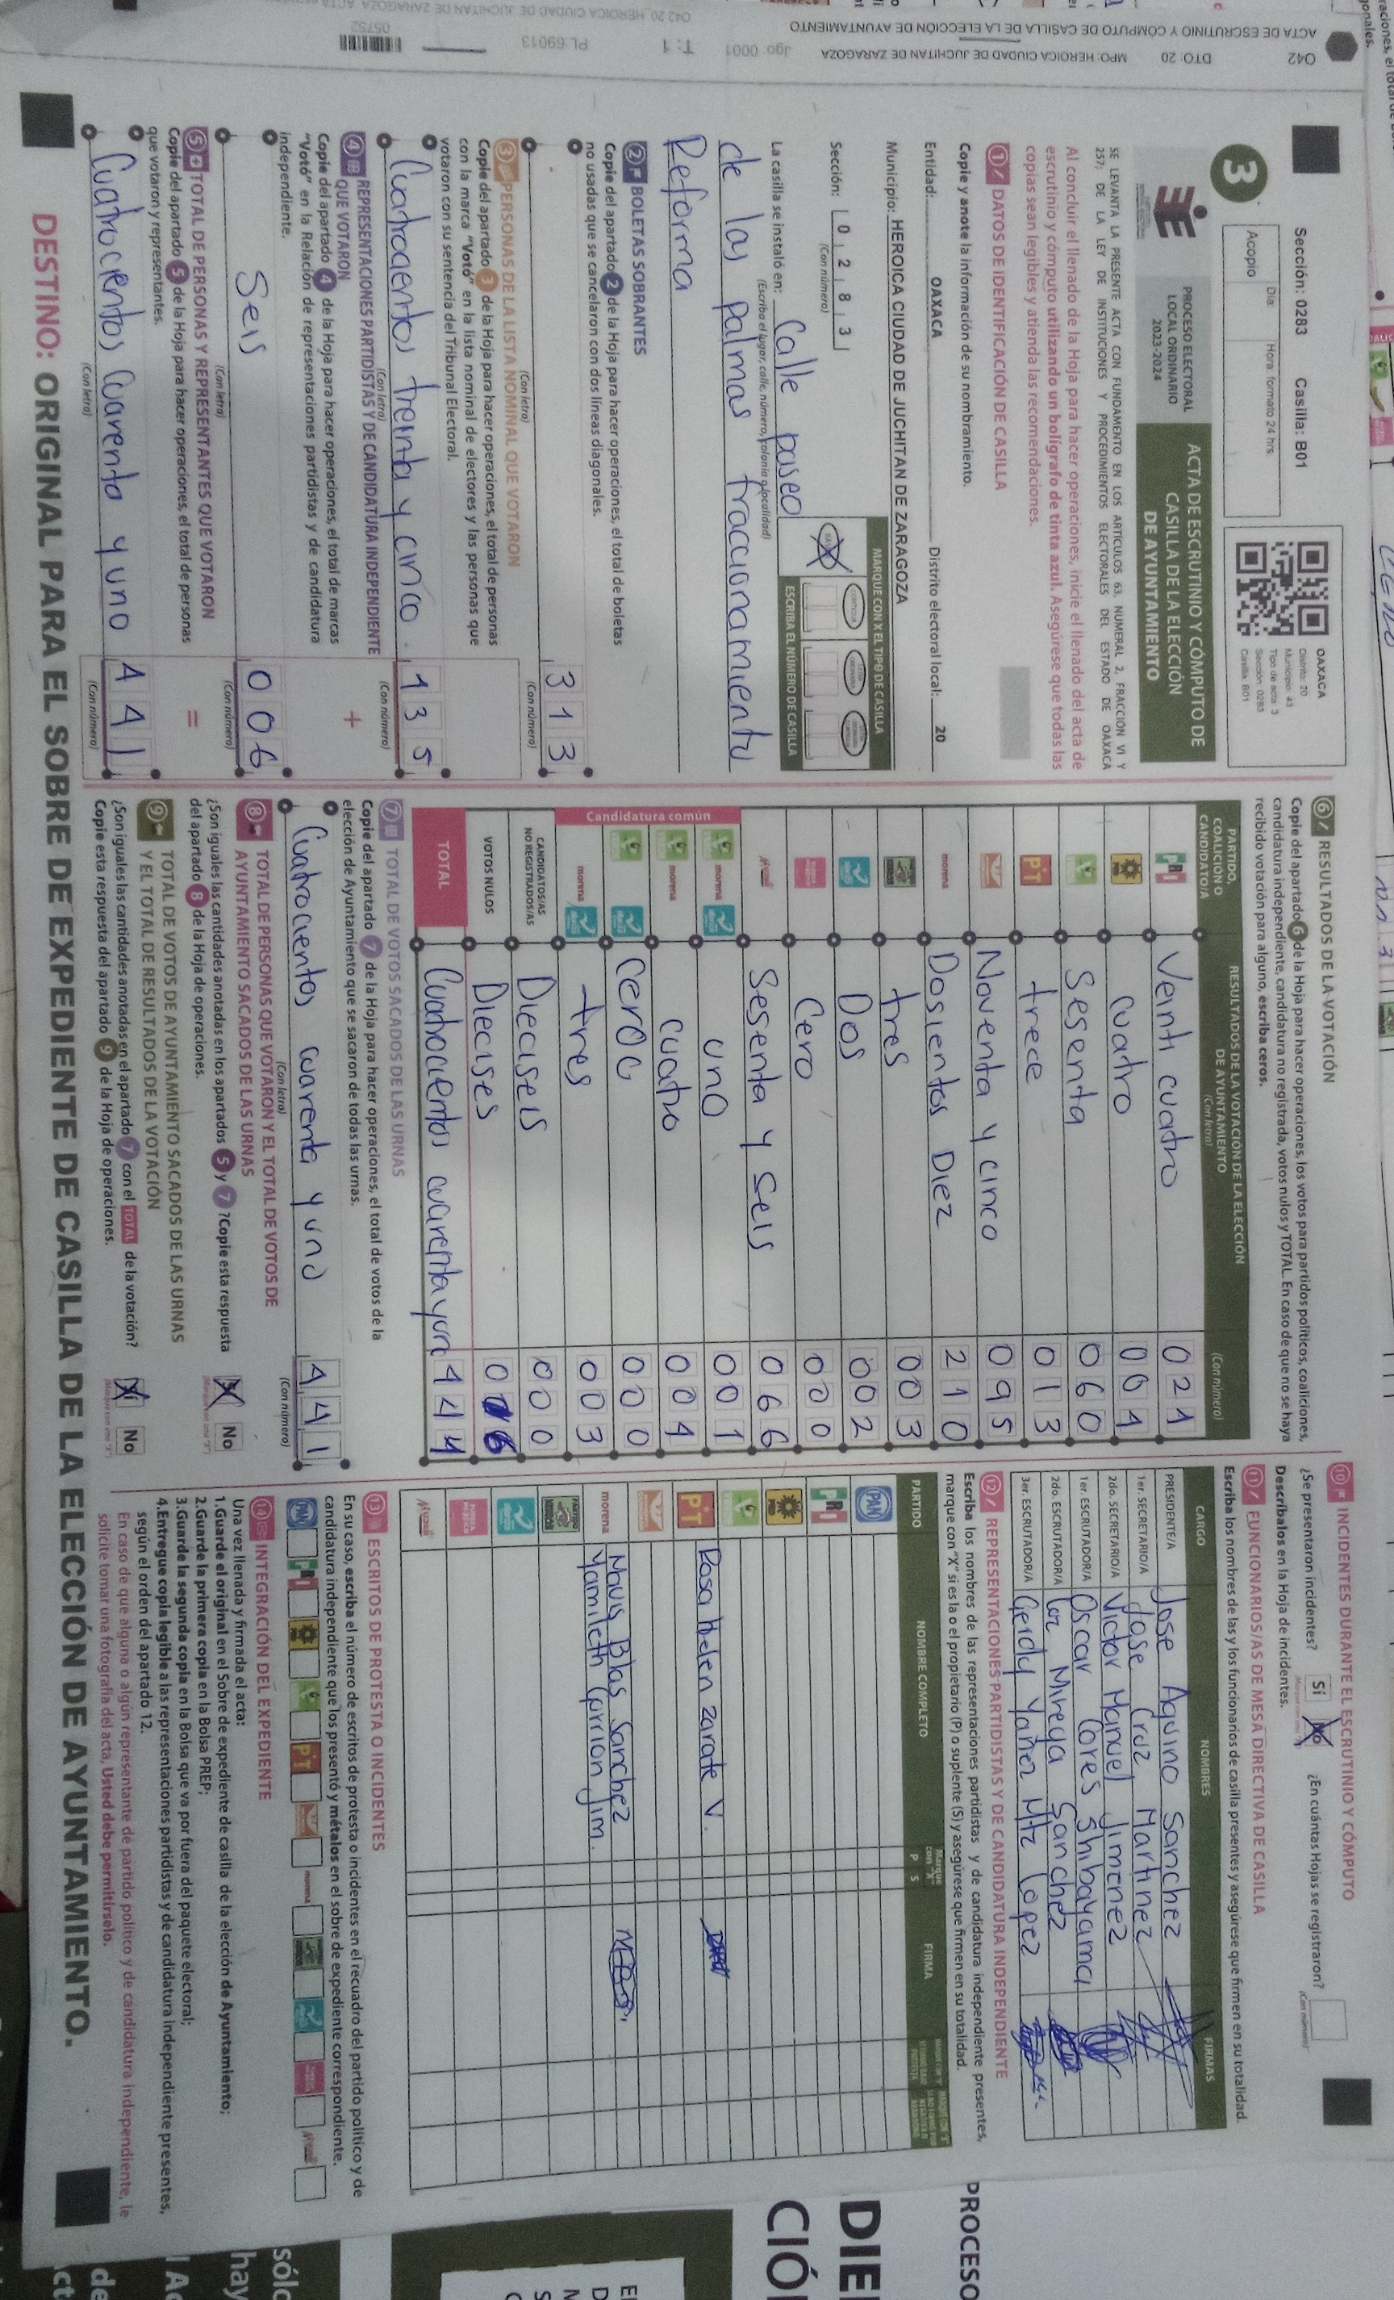 042 DTO: 20 MPO: HEROICA CIUDAD DE JUCHITAN DE ZARAGOZA Jgo. 0001 T: 1 PL: 69013
ACTA DE ESCRUTINIO Y CÓMPUTO DE CASILLA DE LA ELECCIÓN DE AYUNTAMIENTO
Sección: 0283 Casilla: B01
3
Acopio
Día:
Hora: formato 24 hrs
OAXACA
Distrito: 20
Municipio: 43
Tipo de acta: 3
Sección: 0283
Casilla: B01
PROCESO ELECTORAL
LOCAL ORDINARIO
2023-2024
ACTA DE ESCRUTINIO Y CÓMPUTO DE
CASILLA DE LA ELECCIÓN
DE AYUNTAMIENTO
SE LEVANTA LA PRESENTE ACTA CON FUNDAMENTO EN LOS ARTÍCULOS 63, NUMERAL 2, FRACCIÓN VI Y
257; DE LA LEY DE INSTITUCIONES Y PROCEDIMIENTOS ELECTORALES DEL ESTADO DE OAXACA
Al concluir el llenado de la Hoja para hacer operaciones, inicie el llenado del acta de
escrutinio y cómputo utilizando un bolígrafo de tinta azul. Asegúrese que todas las
copias sean legibles y atienda las recomendaciones.
1 DATOS DE IDENTIFICACIÓN DE CASILLA
Copie y anote la información de su nombramiento.
Entidad: OAXACA Distrito electoral local: 20
Municipio: HEROICA CIUDAD DE JUCHITAN DE ZARAGOZA
Sección: 0 2 8 3
(Con número)
MARQUE CON X EL TIPO DE CASILLA
ESCRIBA EL NÚMERO DE CASILLA
La casilla se instaló en: Calle paseo
(Escriba el lugar, calle, número, colonia o localidad)
de las palmas fraccionamiento
Reforma
2 BOLETAS SOBRANTES
Copie del apartado 2 de la Hoja para hacer operaciones, el total de boletas
no usadas que se cancelaron con dos líneas diagonales.
313
(Con letra) (Con número)
3 PERSONAS DE LA LISTA NOMINAL QUE VOTARON
Copie del apartado 3 de la Hoja para hacer operaciones, el total de personas
con la marca "Votó" en la lista nominal de electores y las personas que
votaron con su sentencia del Tribunal Electoral.
Cuatrocientos treinta y cinco 435
(Con letra) (Con número)
4 REPRESENTACIONES PARTIDISTAS Y DE CANDIDATURA INDEPENDIENTE
QUE VOTARON
+
Copie del apartado 4 de la Hoja para hacer operaciones, el total de marcas
"Votó" en la Relación de representaciones partidistas y de candidatura
independiente.
Seis 006
(Con letra) (Con número)
5 TOTAL DE PERSONAS Y REPRESENTANTES QUE VOTARON
=
Copie del apartado 5 de la Hoja para hacer operaciones, el total de personas
que votaron y representantes.
Cuatrocientos cuarenta y uno 441
(Con letra) (Con número)
6 RESULTADOS DE LA VOTACIÓN
Copie del apartado 6 de la Hoja para hacer operaciones, los votos para partidos políticos, coaliciones,
candidatura independiente, candidatura no registrada, votos nulos y TOTAL. En caso de que no se haya
recibido votación para alguno, escriba ceros.
PARTIDO,
COALICIÓN O
CANDIDATO/A
RESULTADOS DE LA VOTACIÓN DE LA ELECCIÓN
DE AYUNTAMIENTO
(Con letra) (Con número)
PRI Veinti cuatro 024
cuatro 004
Sesenta 060
PT trece 013
Noventa y cinco 095
morena Dosientos Diez 210
tres 003
Dos 002
Cero 000
Sesenta y Seis 066
Candidatura común
morena uno 001
morena cuatro 004
Cero 000
morena tres 003
CANDIDATOS/AS
NO REGISTRADOS/AS Dieciseis 000
VOTOS NULOS Diecises 016
TOTAL Cuatrocientos cuarenta y uno 444
7 TOTAL DE VOTOS SACADOS DE LAS URNAS
Copie del apartado 7 de la Hoja para hacer operaciones, el total de votos de la
elección de Ayuntamiento que se sacaron de todas las urnas.
Cuatrocientos cuarenta y uno 441
(Con letra) (Con número)
8 TOTAL DE PERSONAS QUE VOTARON Y EL TOTAL DE VOTOS DE
AYUNTAMIENTO SACADOS DE LAS URNAS
¿Son iguales las cantidades anotadas en los apartados 5 y 7 ? Copie esta respuesta
del apartado 8 de la Hoja de operaciones.
No
9 TOTAL DE VOTOS DE AYUNTAMIENTO SACADOS DE LAS URNAS
Y EL TOTAL DE RESULTADOS DE LA VOTACIÓN
¿Son iguales las cantidades anotadas en el apartado 7 con el TOTAL de la votación?
Copie esta respuesta del apartado 9 de la Hoja de operaciones.
Sí No
10 INCIDENTES DURANTE EL ESCRUTINIO Y CÓMPUTO
¿Se presentaron incidentes? Sí No ¿En cuántas Hojas se registraron?
(Con número)
Descríbalos en la Hoja de incidentes.
11 FUNCIONARIOS/AS DE MESA DIRECTIVA DE CASILLA
Escriba los nombres de las y los funcionarios de casilla presentes y asegúrese que firmen en su totalidad.
CARGO NOMBRES FIRMAS
PRESIDENTE/A Jose Aquino Sanchez
1er. SECRETARIO/A Jose Cruz Martinez
2do. SECRETARIO/A Victor Manuel Jimenez
1er. ESCRUTADOR/A Oscar Cores Shibayama
2do. ESCRUTADOR/A Luz Mireya Sanchez
3er. ESCRUTADOR/A Gerdy Yañez Mtz Lopez
12 REPRESENTACIONES PARTIDISTAS Y DE CANDIDATURA INDEPENDIENTE
Escriba los nombres de las representaciones partidistas y de candidatura independiente presentes,
marque con "X" si es la o el propietario (P) o suplente (S) y asegúrese que firmen en su totalidad.
PARTIDO NOMBRE COMPLETO Marque con "X" P S FIRMA
PAN
PRI
PRD
PT Rosa Helen Zarate V.
morena Mavis Blas Sanchez
Yamileth Carrion Jim.
13 ESCRITOS DE PROTESTA O INCIDENTES
En su caso, escriba el número de escritos de protesta o incidentes en el recuadro del partido político y de
candidatura independiente que los presentó y métalos en el sobre de expediente correspondiente.
PAN PRI PT morena
14 INTEGRACIÓN DEL EXPEDIENTE
Una vez llenada y firmada el acta:
1.Guarde el original en el Sobre de expediente de casilla de la elección de Ayuntamiento;
2.Guarde la primera copia en la Bolsa PREP;
3.Guarde la segunda copia en la Bolsa que va por fuera del paquete electoral;
4.Entregue copia legible a las representaciones partidistas y de candidatura independiente presentes,
según el orden del apartado 12.
En caso de que alguna o algún representante de partido político y de candidatura independiente, le
solicite tomar una fotografía del acta, Usted debe permitírselo.
DESTINO: ORIGINAL PARA EL SOBRE DE EXPEDIENTE DE CASILLA DE LA ELECCIÓN DE AYUNTAMIENTO.
PROCESO
DIE
CIÓ
sólo
hay
de